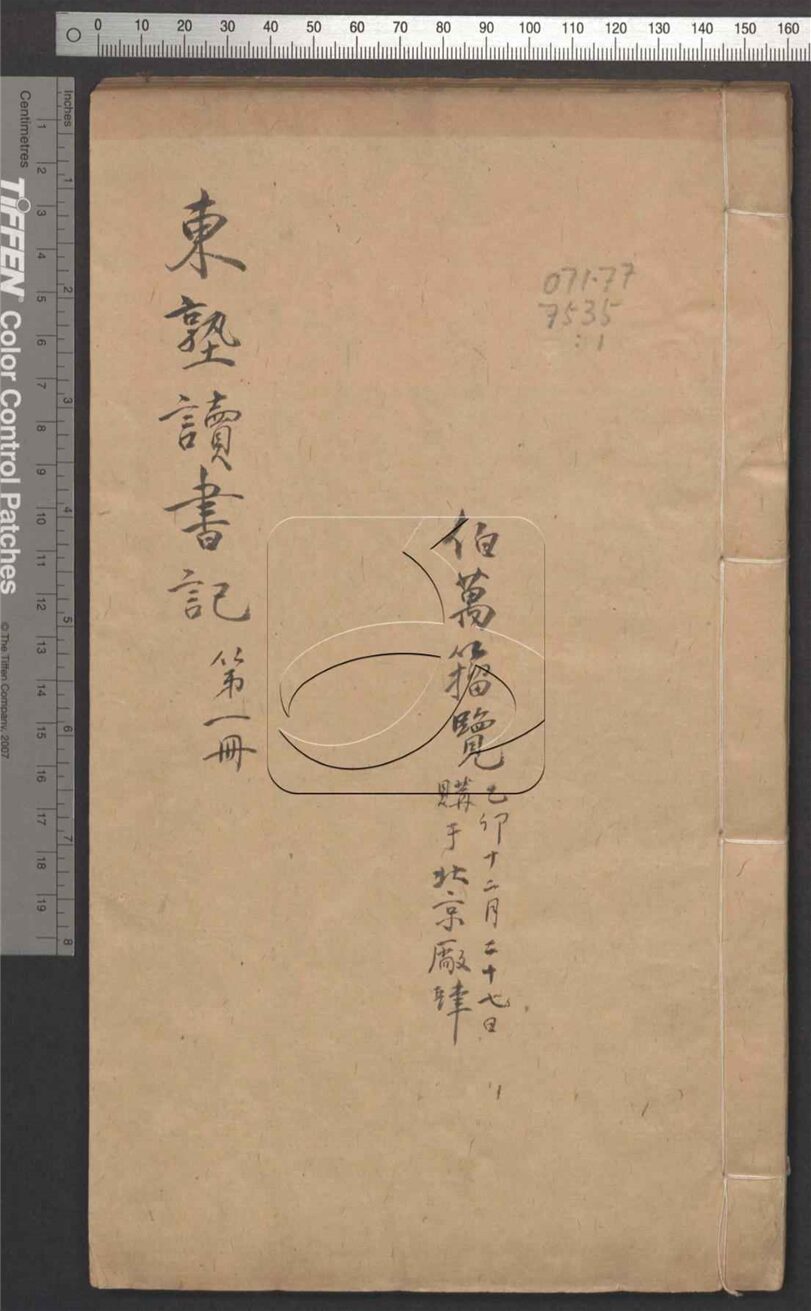 0 10 20 30 40 50 60 70 80 90 100 110 120 130 140 150 160
Inches
1 2 3 4 5 6 7 8
Centimetres
1 2 3 4 5 6 7 8 9 10 11 12 13 14 15 16 17 18 19
TIFFEN Color Control Patches
© The Tiffen Company, 2007
071.77
7535
:1
伯萬籀覽
己卯十二月二十七日
購于北京廠肆
東塾讀書記
第一冊